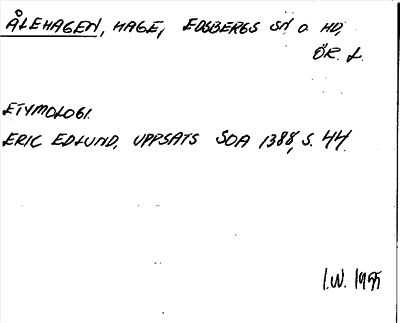 ÅLEHAGEN, HAGE, EDSBERGS SN O. HD,
ÖR. L.
ETYMOLOGI.
ERIC EDLUND, UPPSATS SOA 1388, S. 44.
I.W. 1955